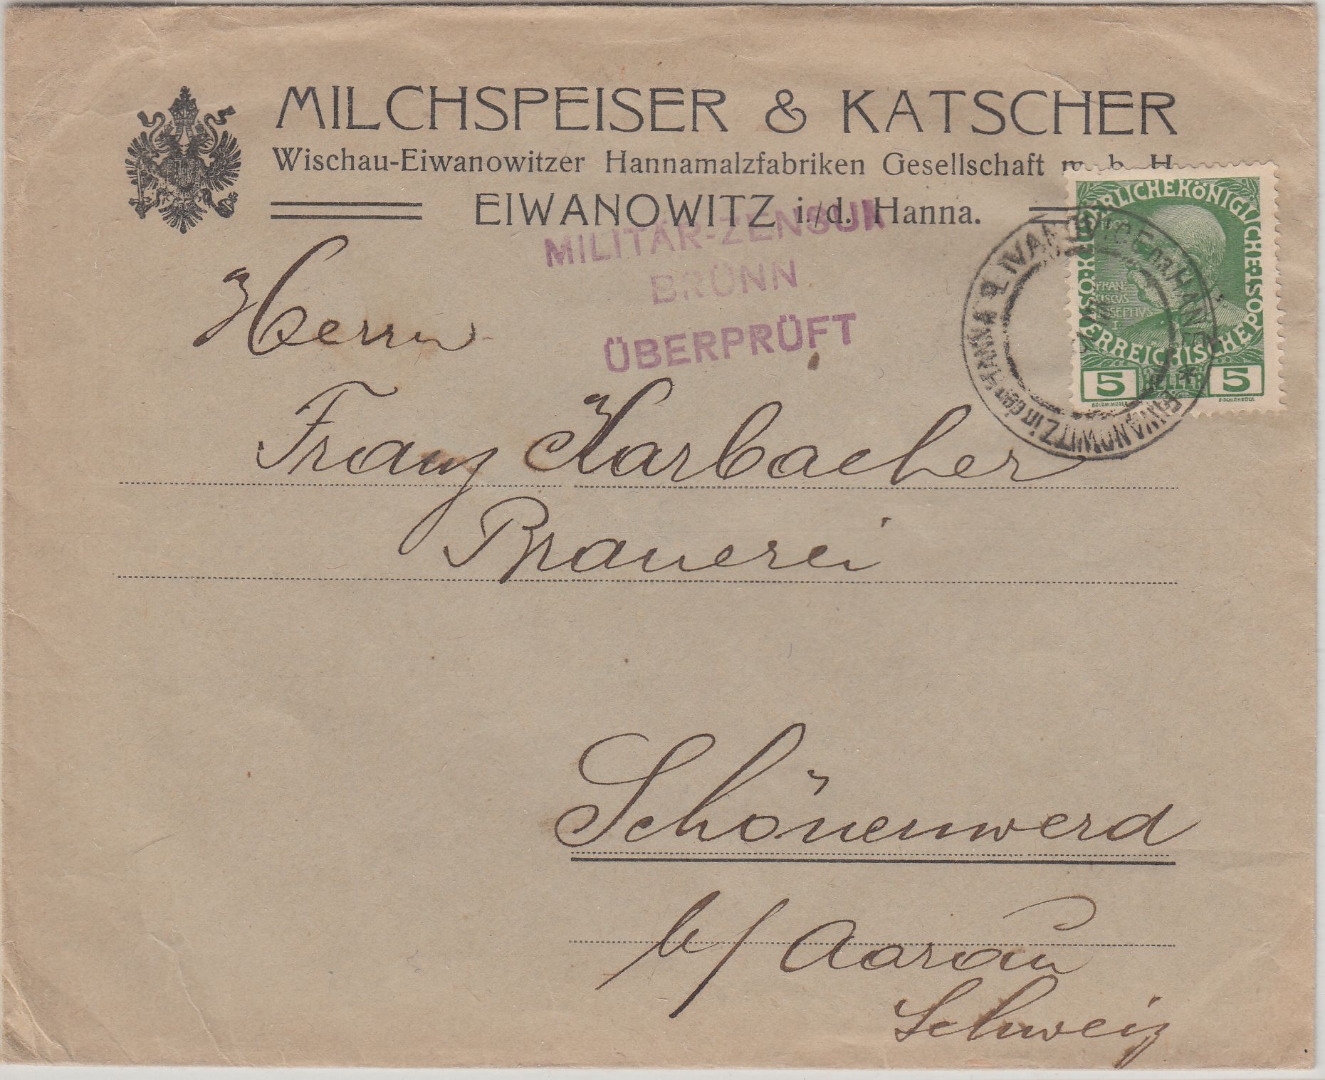 MILCHSPEISER & KATSCHER
Wischau-Eiwanowitzer Hannamalzfabriken Gesellschaft m. b. H.
EIWANOWITZ i/d. Hanna.
MILITÄR-ZENSUR
BRÜNN
ÜBERPRÜFT
KAISERLICHE KÖNIGLICHE ÖSTERREICHISCHE POST
FRAN
CISCUS
IOSEPHUS
I
5 HELLER 5
EIWANOWITZ in der HANNA
Herrn
Franz Karbacher
Brauerei
Schönenwerd
b/ Aarau
Schweiz